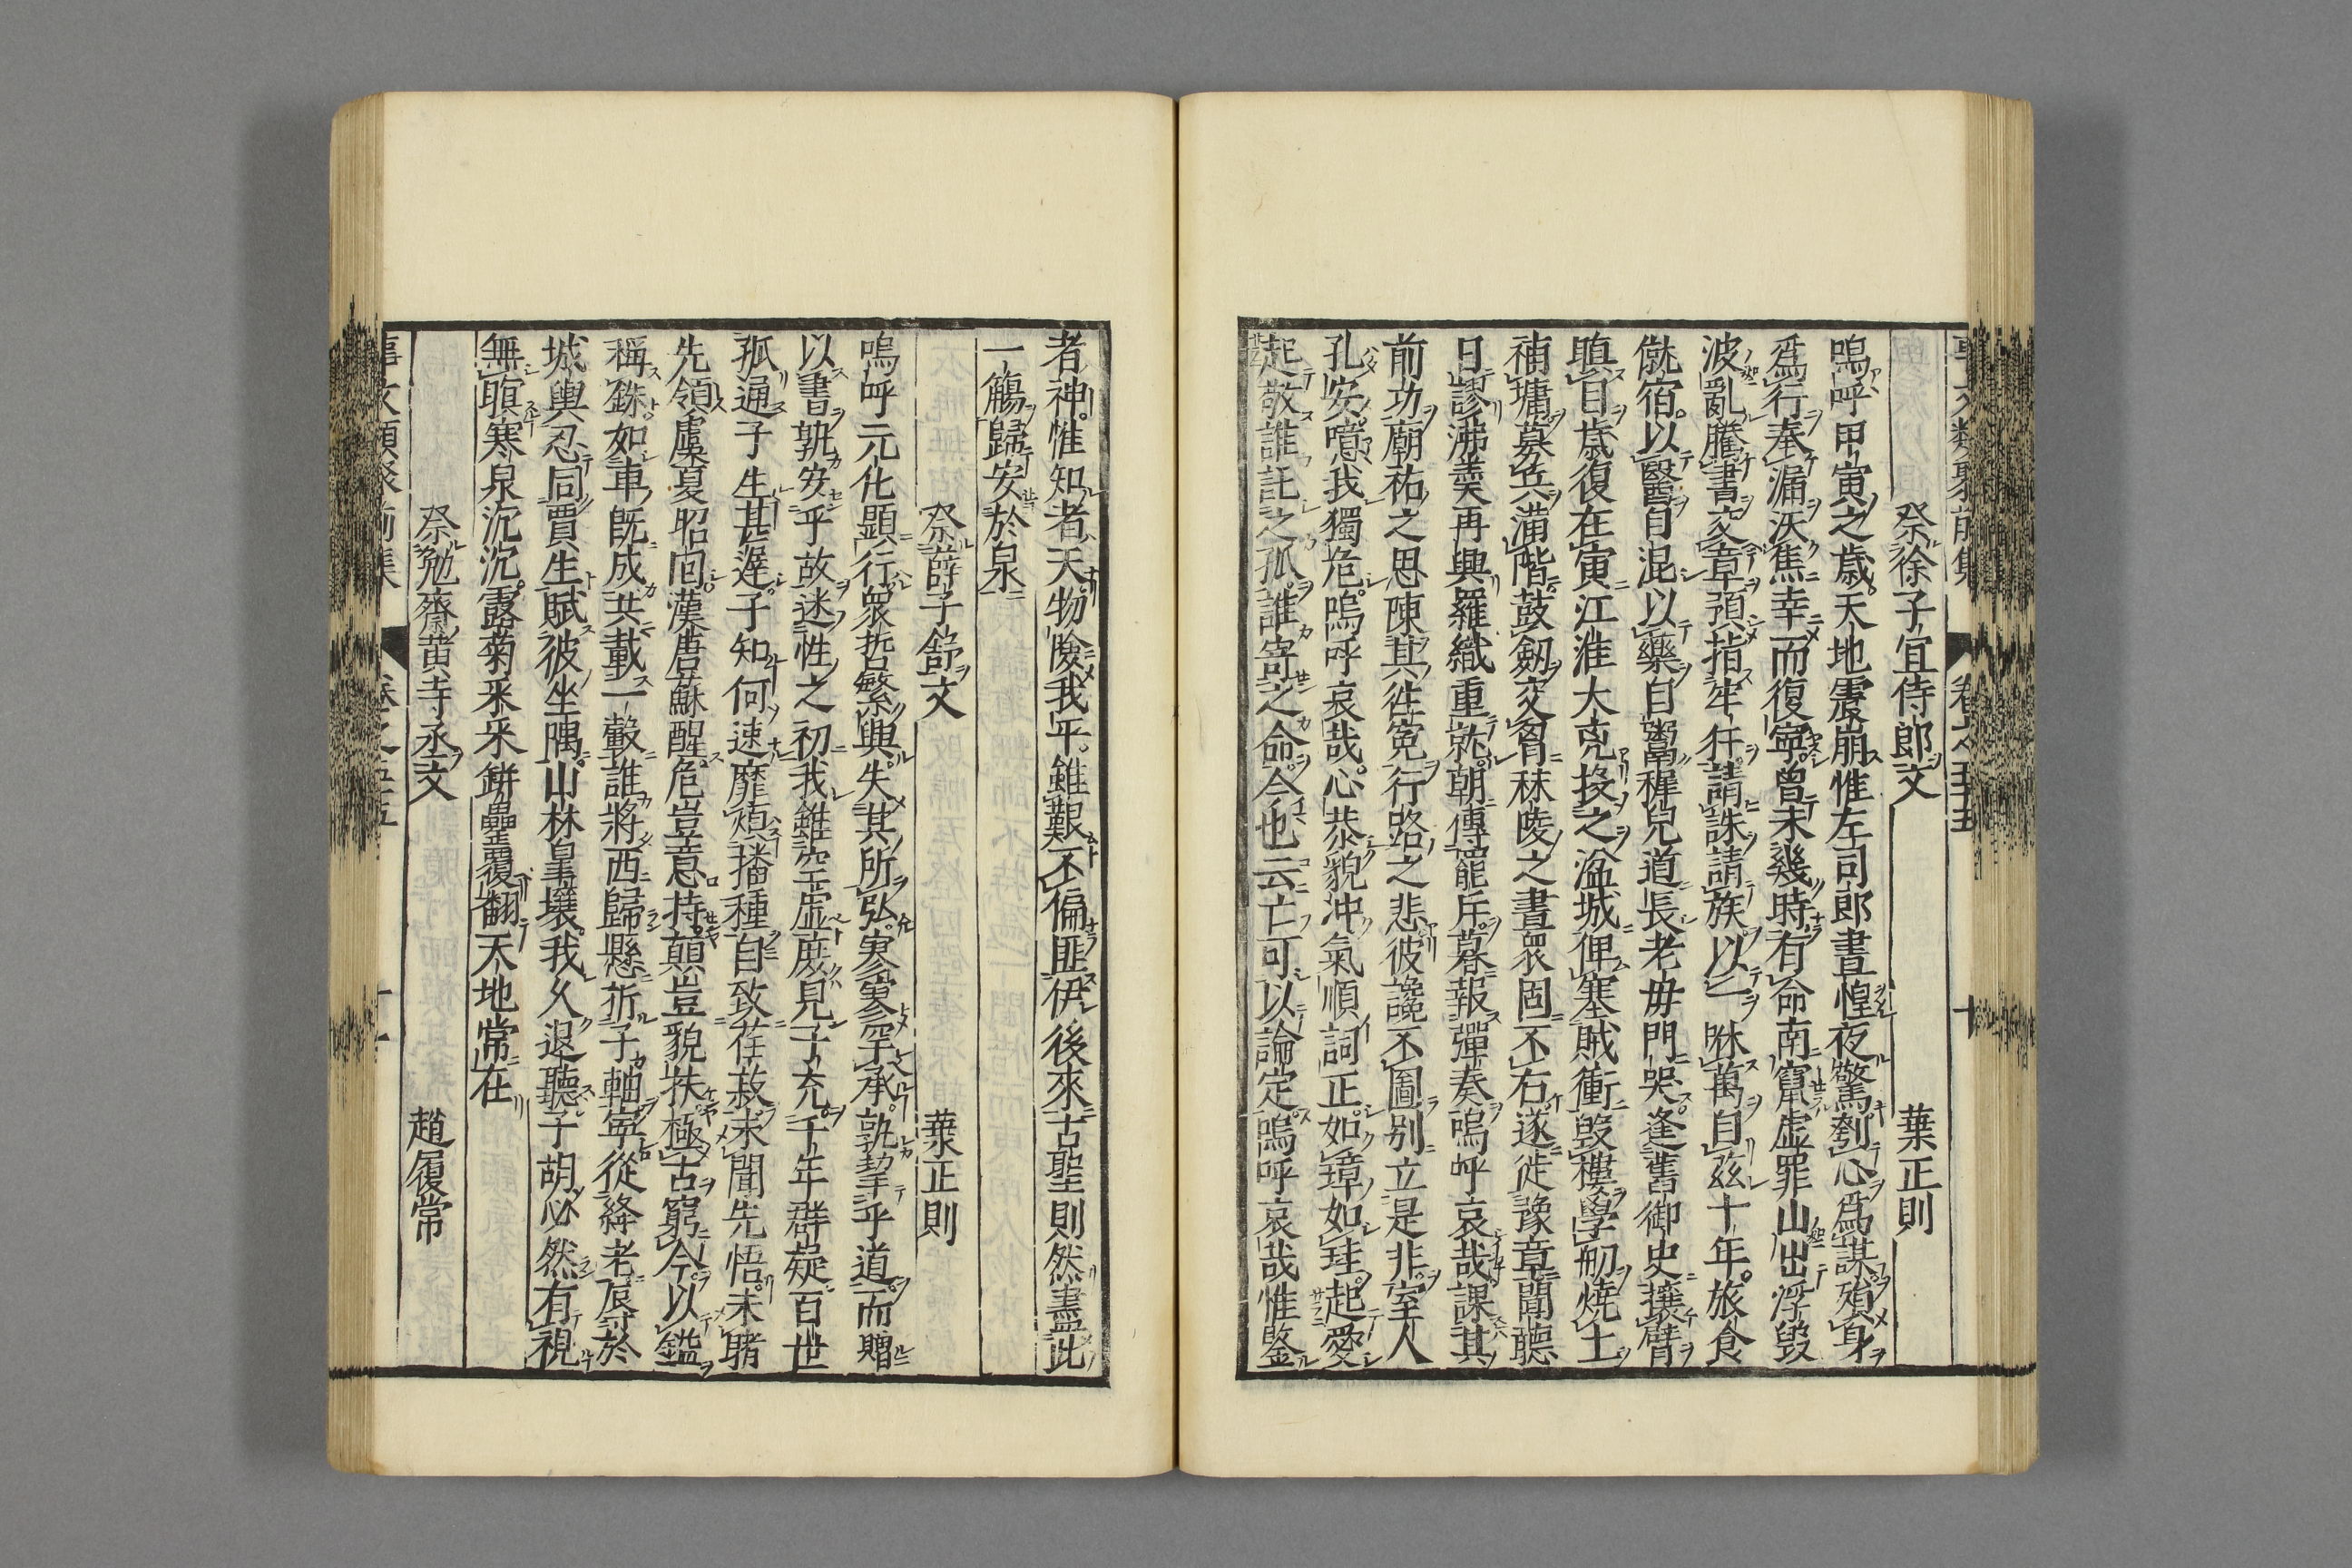 祭徐子宜侍郎文　葉正則
嗚呼甲寅之歳天地震崩惟左司郎晝惶夜驚刳心為謀殞身
爲行奉漏沃焦幸而復寧曾未幾時有命南竄虛罪山出浮毀
波亂騰書交章預指牢犴請誅請族以乙眯萬自茲十年旅食
僦宿以醫自混以藥自鬻穉兒道長老毋門哭逢舊御史攘臂
瞋目歳復在寅江淮大克投之湓城俾塞賊衝毀樓學舠燒土
補墉募兵滿階鼓劒交胷秣陵之晝衆固不右遂徙豫章聞聽
日謬沸羹再興羅織重就朝傳寵斥暮報彈奏嗚呼哀哉課其
前功廟祐之思陳其徃寃行路之悲彼讒不圖别立是非室人
孔安噫我獨危嗚呼哀哉心恭貌冲氣順詞正如璋如珪起愛
起敬誰託之孤誰寄之命今也云亡可以論定嗚呼哀哉惟鍳
者神惟知者天物險我平雖艱不偏匪伊後來古聖則然盡此
一觴歸安於泉
祭薛子舒文　葉正則
嗚呼元化顯行衆哲繫與失其所弘寥寥罕承孰挈乎道而贈
以書孰安乎故迷性之初我雖空虛庶見子充千年群疑百世
孤通子生甚遲子知何速靡煩播種自致荏菽未聞先悟未睹
先領虞夏昭囘漢唐蘇醒危豈意持顛豈貌扶極古窮今以鑑
稱銖如車既成共載一轂誰將西歸懸折子軸寧從絳老辰於
城輿忍同賈生賦彼坐隅山林皇壤我久退聽子胡必然有視
無瞑寒泉沉沉露菊釆釆缾罍覆翻天地常在
祭勉齋黃寺丞文　趙履常